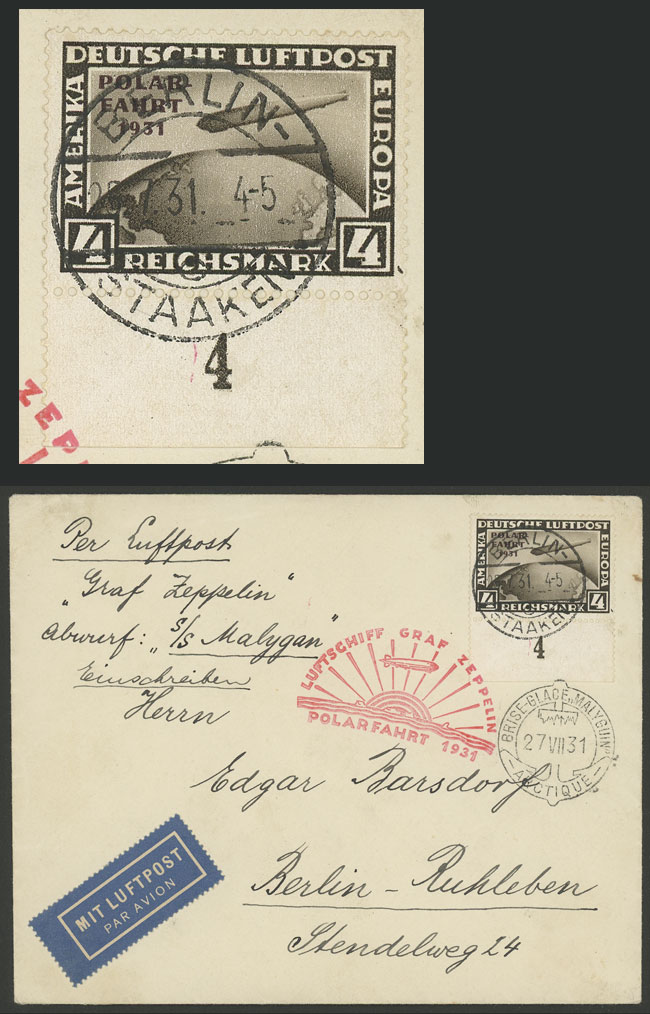 DEUTSCHE LUFTPOST
AMERIKA
EUROPA
POLAR-
FAHRT
1931
BERLIN-
7.31. 4-5
STAAKEN
4 REICHSMARK 4
4
ZEPP
Per Luftpost
"Graf Zeppelin"
Abwurf: "S/S Malygan"
Einschreiben
Herrn
Edgar Barsdorf
Berlin-Ruhleben
Stendelweg 24
DEUTSCHE LUFTPOST
AMERIKA
EUROPA
POLAR-
FAHRT
1931
BERLIN-
7.31. 4-5
STAAKEN
4 REICHSMARK 4
4
LUFTSCHIFF GRAF ZEPPELIN
POLARFAHRT 1931
BRISE-GLACE „MALYGUIN"
27 VII 31
ARCTIQUE
MIT LUFTPOST
PAR AVION